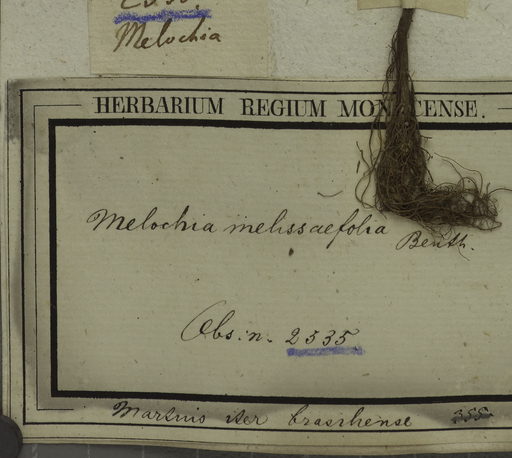 Melochia
HERBARIUM REGIUM MONACENSE.
Melochia melissaefolia Benth.
Obs. n. 2535
Martius iter brasiliense